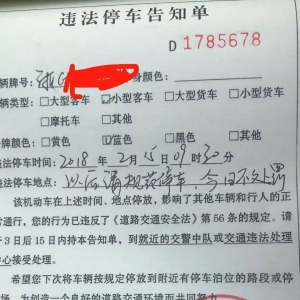 违法停车告知单
D 1785678
车辆牌号: 浙G 身颜色:
车辆类型: □大型客车 ☑小型客车 □大型货车 □小型货车
□摩托车 □其他
□黄色 ☑蓝色 □黑色 □其他
违法停车时间: 2018 年 2 月 15 日 09 时 30 分
违法停车地点: 以后请规范停车,今日不处罚
该机动车在上述时间、地点停放,影响了其他车辆和行人的正
常通行,您的行为已违反了《道路交通安全法》第 56 条的规定。请
于 3 日后 15 日内持本告知单,到就近的交警中队或交通违法处理
中心接受处理。
希望您下次将车辆按规定停放到附近有停车泊位的路段或停
车场,为创造一个良好的道路交通环境而共同努力